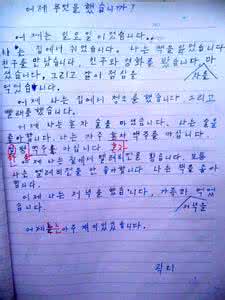 어제 무엇을 했습니까?
어제는 일요일이었습니다.
나는 집에서 쉬었습니다. 나는 책을 읽었습니다
친구를 만났습니다. 친구와 영화를 봤습니다.
었습니다. 그리고 많이 점심을
차를
먹었습니다.
어제 나는 집에서 청소를 했습니다. 그리고
빨래를 했습니다.
어제 나는 혼자 술을 마셨습니다. 나는 술을
좋아합니다. 나는 자주 혼자 맥주를 마십니다.
맥주를 마십니다. 혼자
어제 나는 집에서 텔레비전을 봤습니다. 보통
나는 텔레비전을 안 좋아합니다. 나는 책을 좋아
합니다.
어제 나는 저녁을 했습니다. 가족과 먹었
습니다.
저녁을
어제는 아주 재미있었습니다.